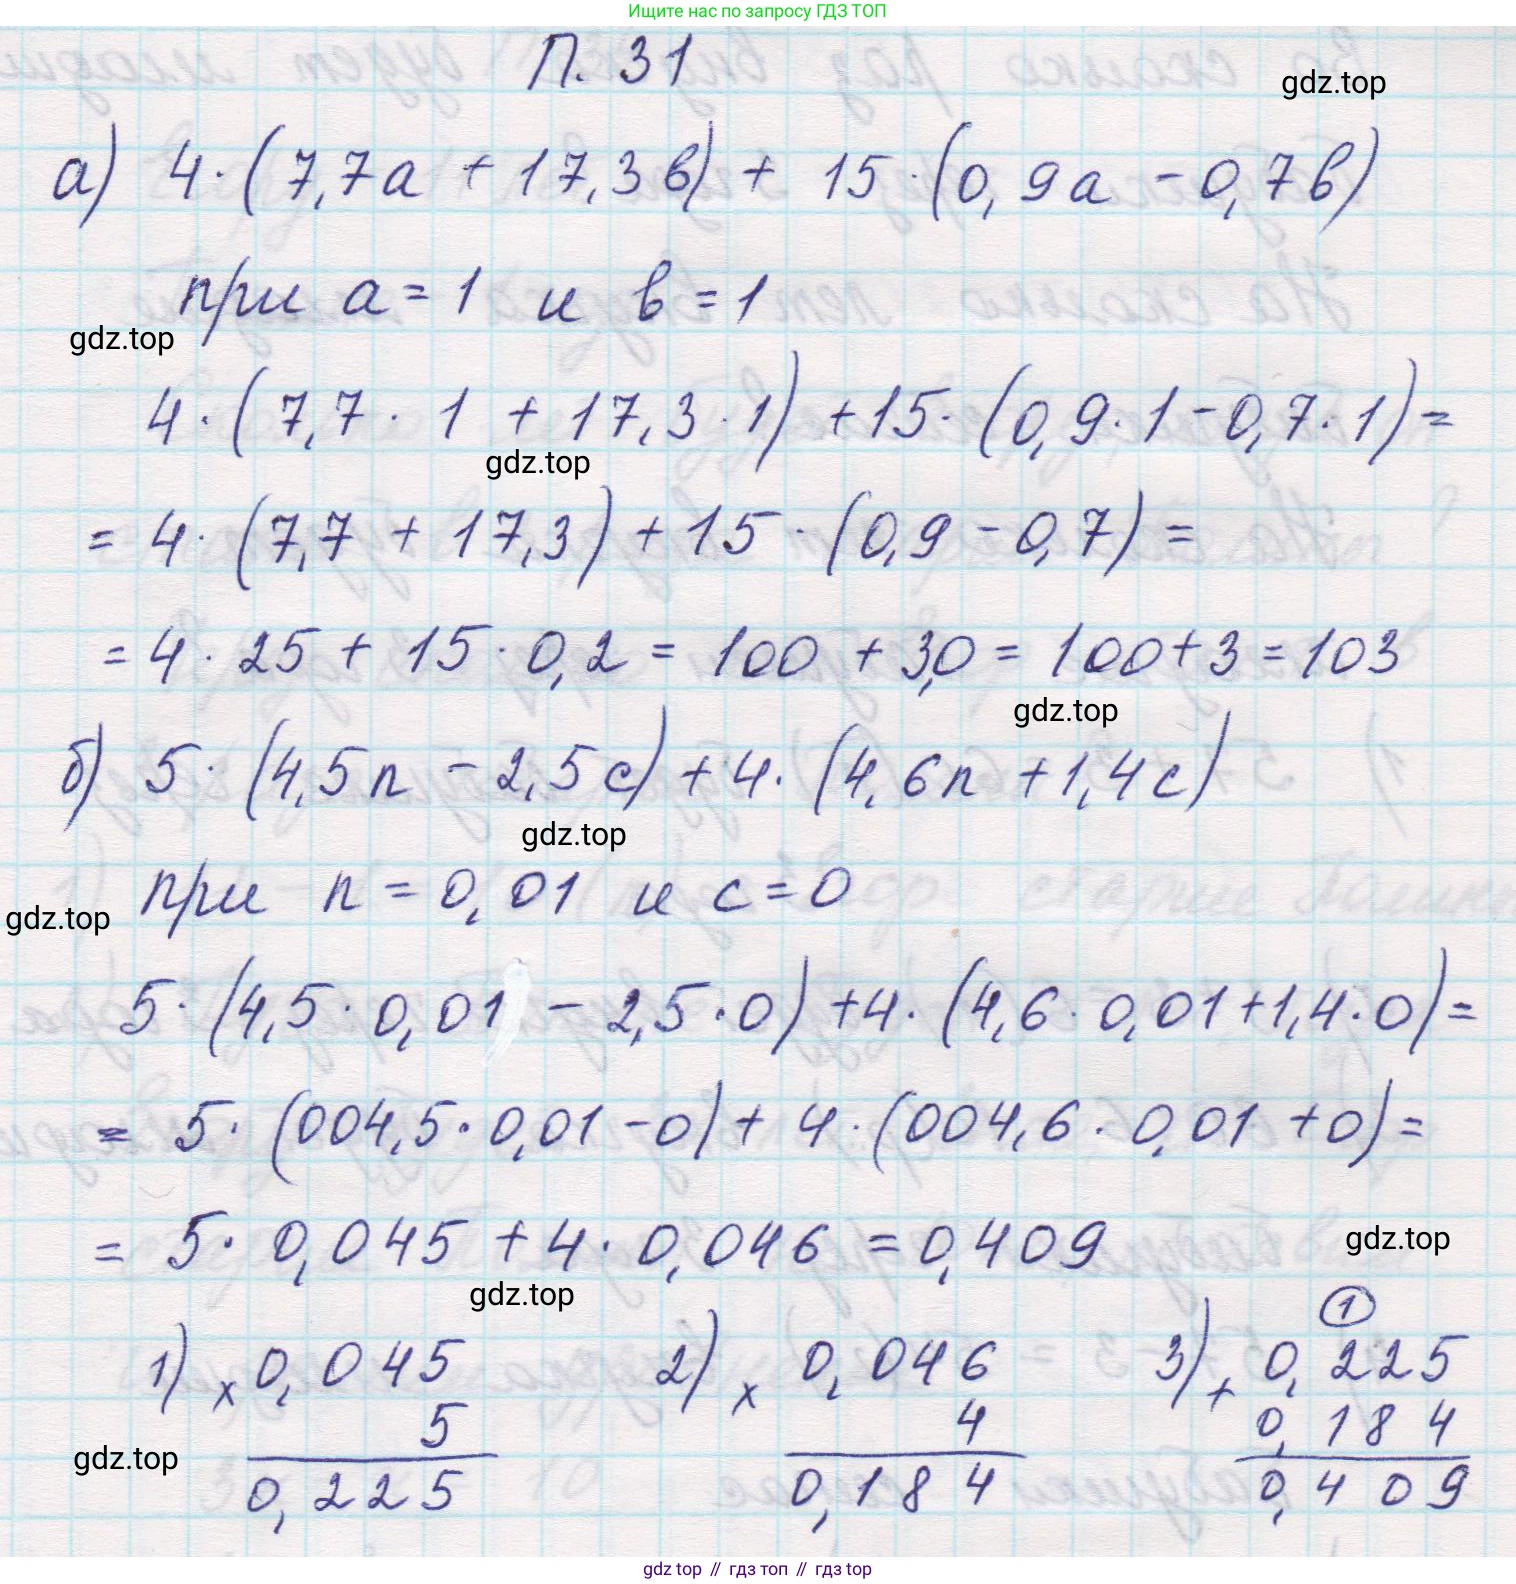 Ищите нас по запросу ГДЗ ТОП
П. 31
gdz.top
а) 4·(7,7а + 17,3в) + 15·(0,9а - 0,7в)
при а = 1 и в = 1
gdz.top
4·(7,7·1 + 17,3·1) + 15·(0,9·1 - 0,7·1) =
gdz.top
= 4·(7,7 + 17,3) + 15·(0,9 - 0,7) =
= 4·25 + 15·0,2 = 100 + 3,0 = 100 + 3 = 103
gdz.top
б) 5·(4,5n - 2,5с) + 4·(4,6n + 1,4с)
gdz.top
при n = 0,01 и с = 0
gdz.top
5·(4,5·0,01 - 2,5·0) + 4·(4,6·0,01 + 1,4·0) =
= 5·(004,5·0,01 - 0) + 4·(004,6·0,01 + 0) =
= 5·0,045 + 4·0,046 = 0,409
gdz.top
gdz.top
1
1) × 0,045 2) × 0,046 3) + 0,225
5 4 0,184
gdz.top
0,225 0,184 0,409
gdz.top // гдз топ // гдз.top